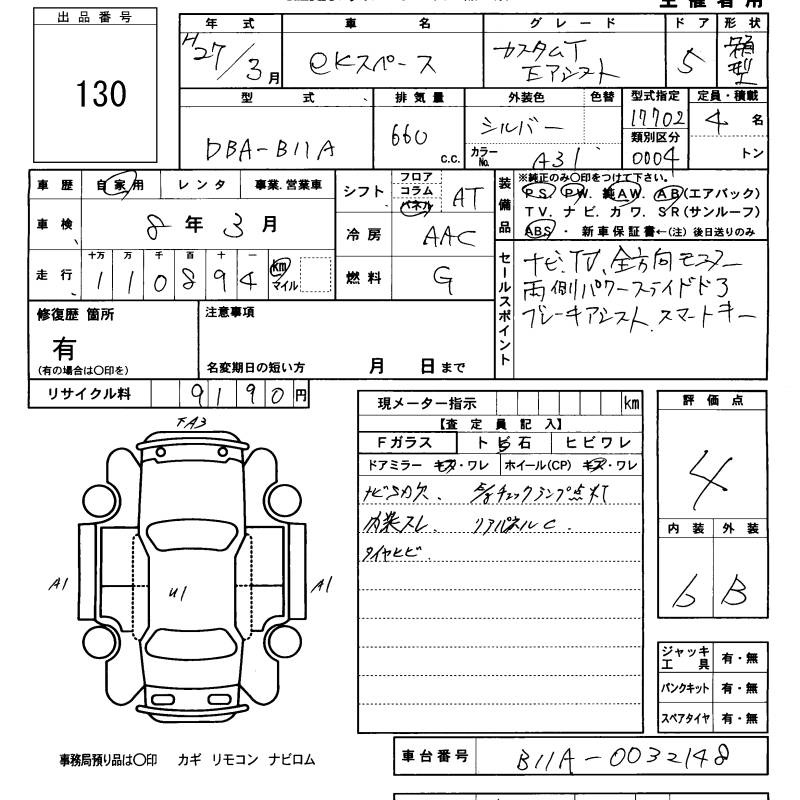 出品番号
130
年式 車名 グレード ドア 形状
H27/3月 eKスペース カスタムT Eアシスト 5 箱型
型式 排気量 外装色 色替 型式指定 定員・積載
DBA-B11A 660 C.C. シルバー 17702 4名
カラーNo. A31 類別区分 0004 トン
車歴 自家用 レンタ 事業.営業車
車検 8年3月
走行 十万 万 千 百 十 一
110894 km マイル
シフト フロア コラム パネル AT
冷房 AAC
燃料 G
装備品 ※純正のみ〇印をつけて下さい。
PS. PW. 純AW. AB(エアバック)
TV. ナビ. カワ. SR(サンルーフ)
ABS. 新車保証書←(注) 後日送りのみ
セールスポイント
ナビ.TV.全方向モニター
両側パワースライドドア
ブレーキアシスト.スマートキー
修復歴 箇所
有
(有の場合は〇印を)
注意事項
名変期日の短い方 月 日まで
リサイクル料 9190円
現メーター指示 km
【査定員記入】
Fガラス トビ石 ヒビワレ
ドアミラー キズ・ワレ ホイール(CP) キズ・ワレ
ナビSD欠. チェックランプ点灯
内装スレ. リアパネルC.
タイヤヒビ.
評価点
4
内装 外装
b B
FA3
A1 U1 A1
ジャッキ工具 有・無
パンクキット 有・無
スペアタイヤ 有・無
事務局預り品は〇印 カギ リモコン ナビロム
車台番号 B11A-0032148